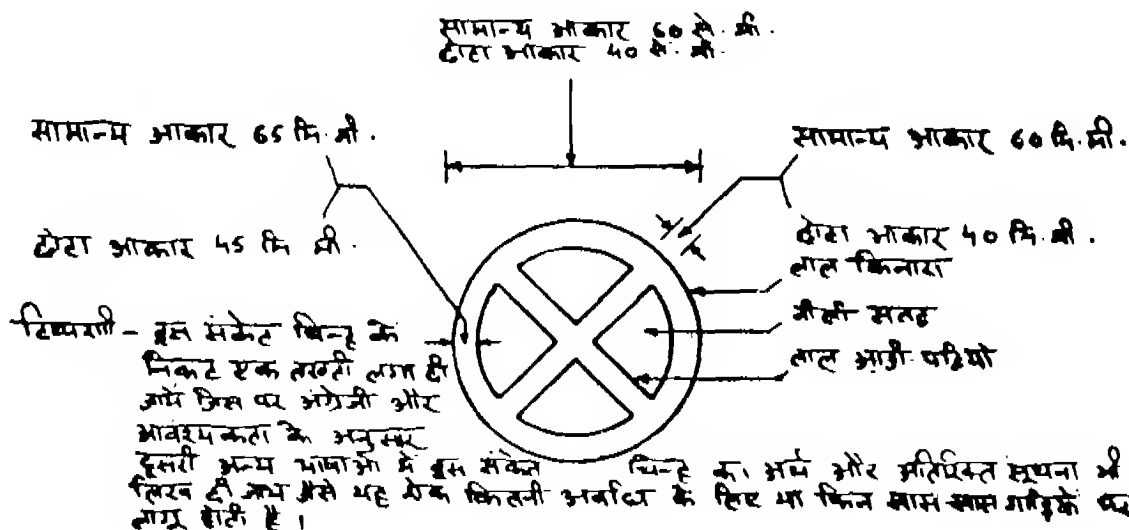 सामान्य आकार 60 से. मी.
छोटा आकार 40 से. मी.
सामान्य आकार 65 मि. मी.
सामान्य आकार 60 मि. मी.
छोटा आकार 45 मि मी.
छोटा आकार 40 मि. मी.
लाल किनारा
नीली सतह
लाल आड़ी पट्टियां
टिप्पणी - इस संकेत चिन्ह के
निकट एक तख्ती लगा दी
जाये जिस पर अंग्रेजी और
आवश्यकता के अनुसार
दूसरी अन्य भाषाओं में इस संकेत चिन्ह का अर्थ और अतिरिक्त सूचना भी
लिख दी जाय जैसे यह रोक कितनी अवधि के लिए या किन खास खास गाड़ियों पर
लागू होती है ।